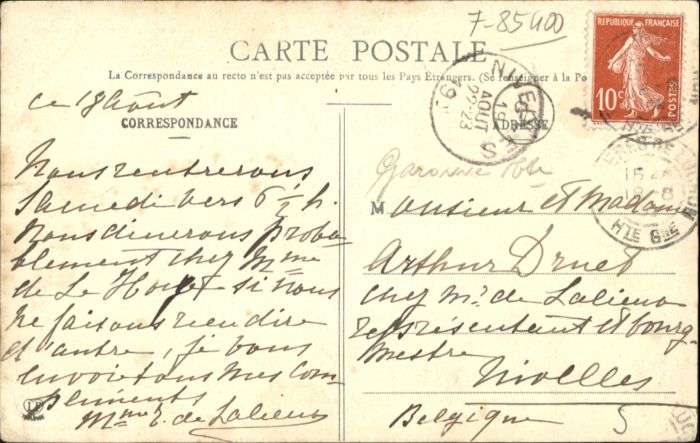 7-85400
CARTE POSTALE
La Correspondance au recto n'est pas acceptée par tous les Pays Etrangers. (Se renseigner à la Po
RÉPUBLIQUE FRANÇAISE
10c
POSTES
NIVELLES
AOUT
22-23
19
CORRESPONDANCE
ADRESSE
ce 18 Août
Nous rentrerons
Samedi vers 6 ½ h.
Nous dinerons proba
blement chez Mme
de Le si nous
ne faisons rien dire
d'autre, je vous
envoie tous mes com
pliments
Mme E. de Lalieux
Garonne Hte
Monsieur et Madame
Arthur Druet
chez Mr. de Lalieux
représentant et bourg-
mestre
Nivelles
Belgique
5
15
18-8
HTE GNE